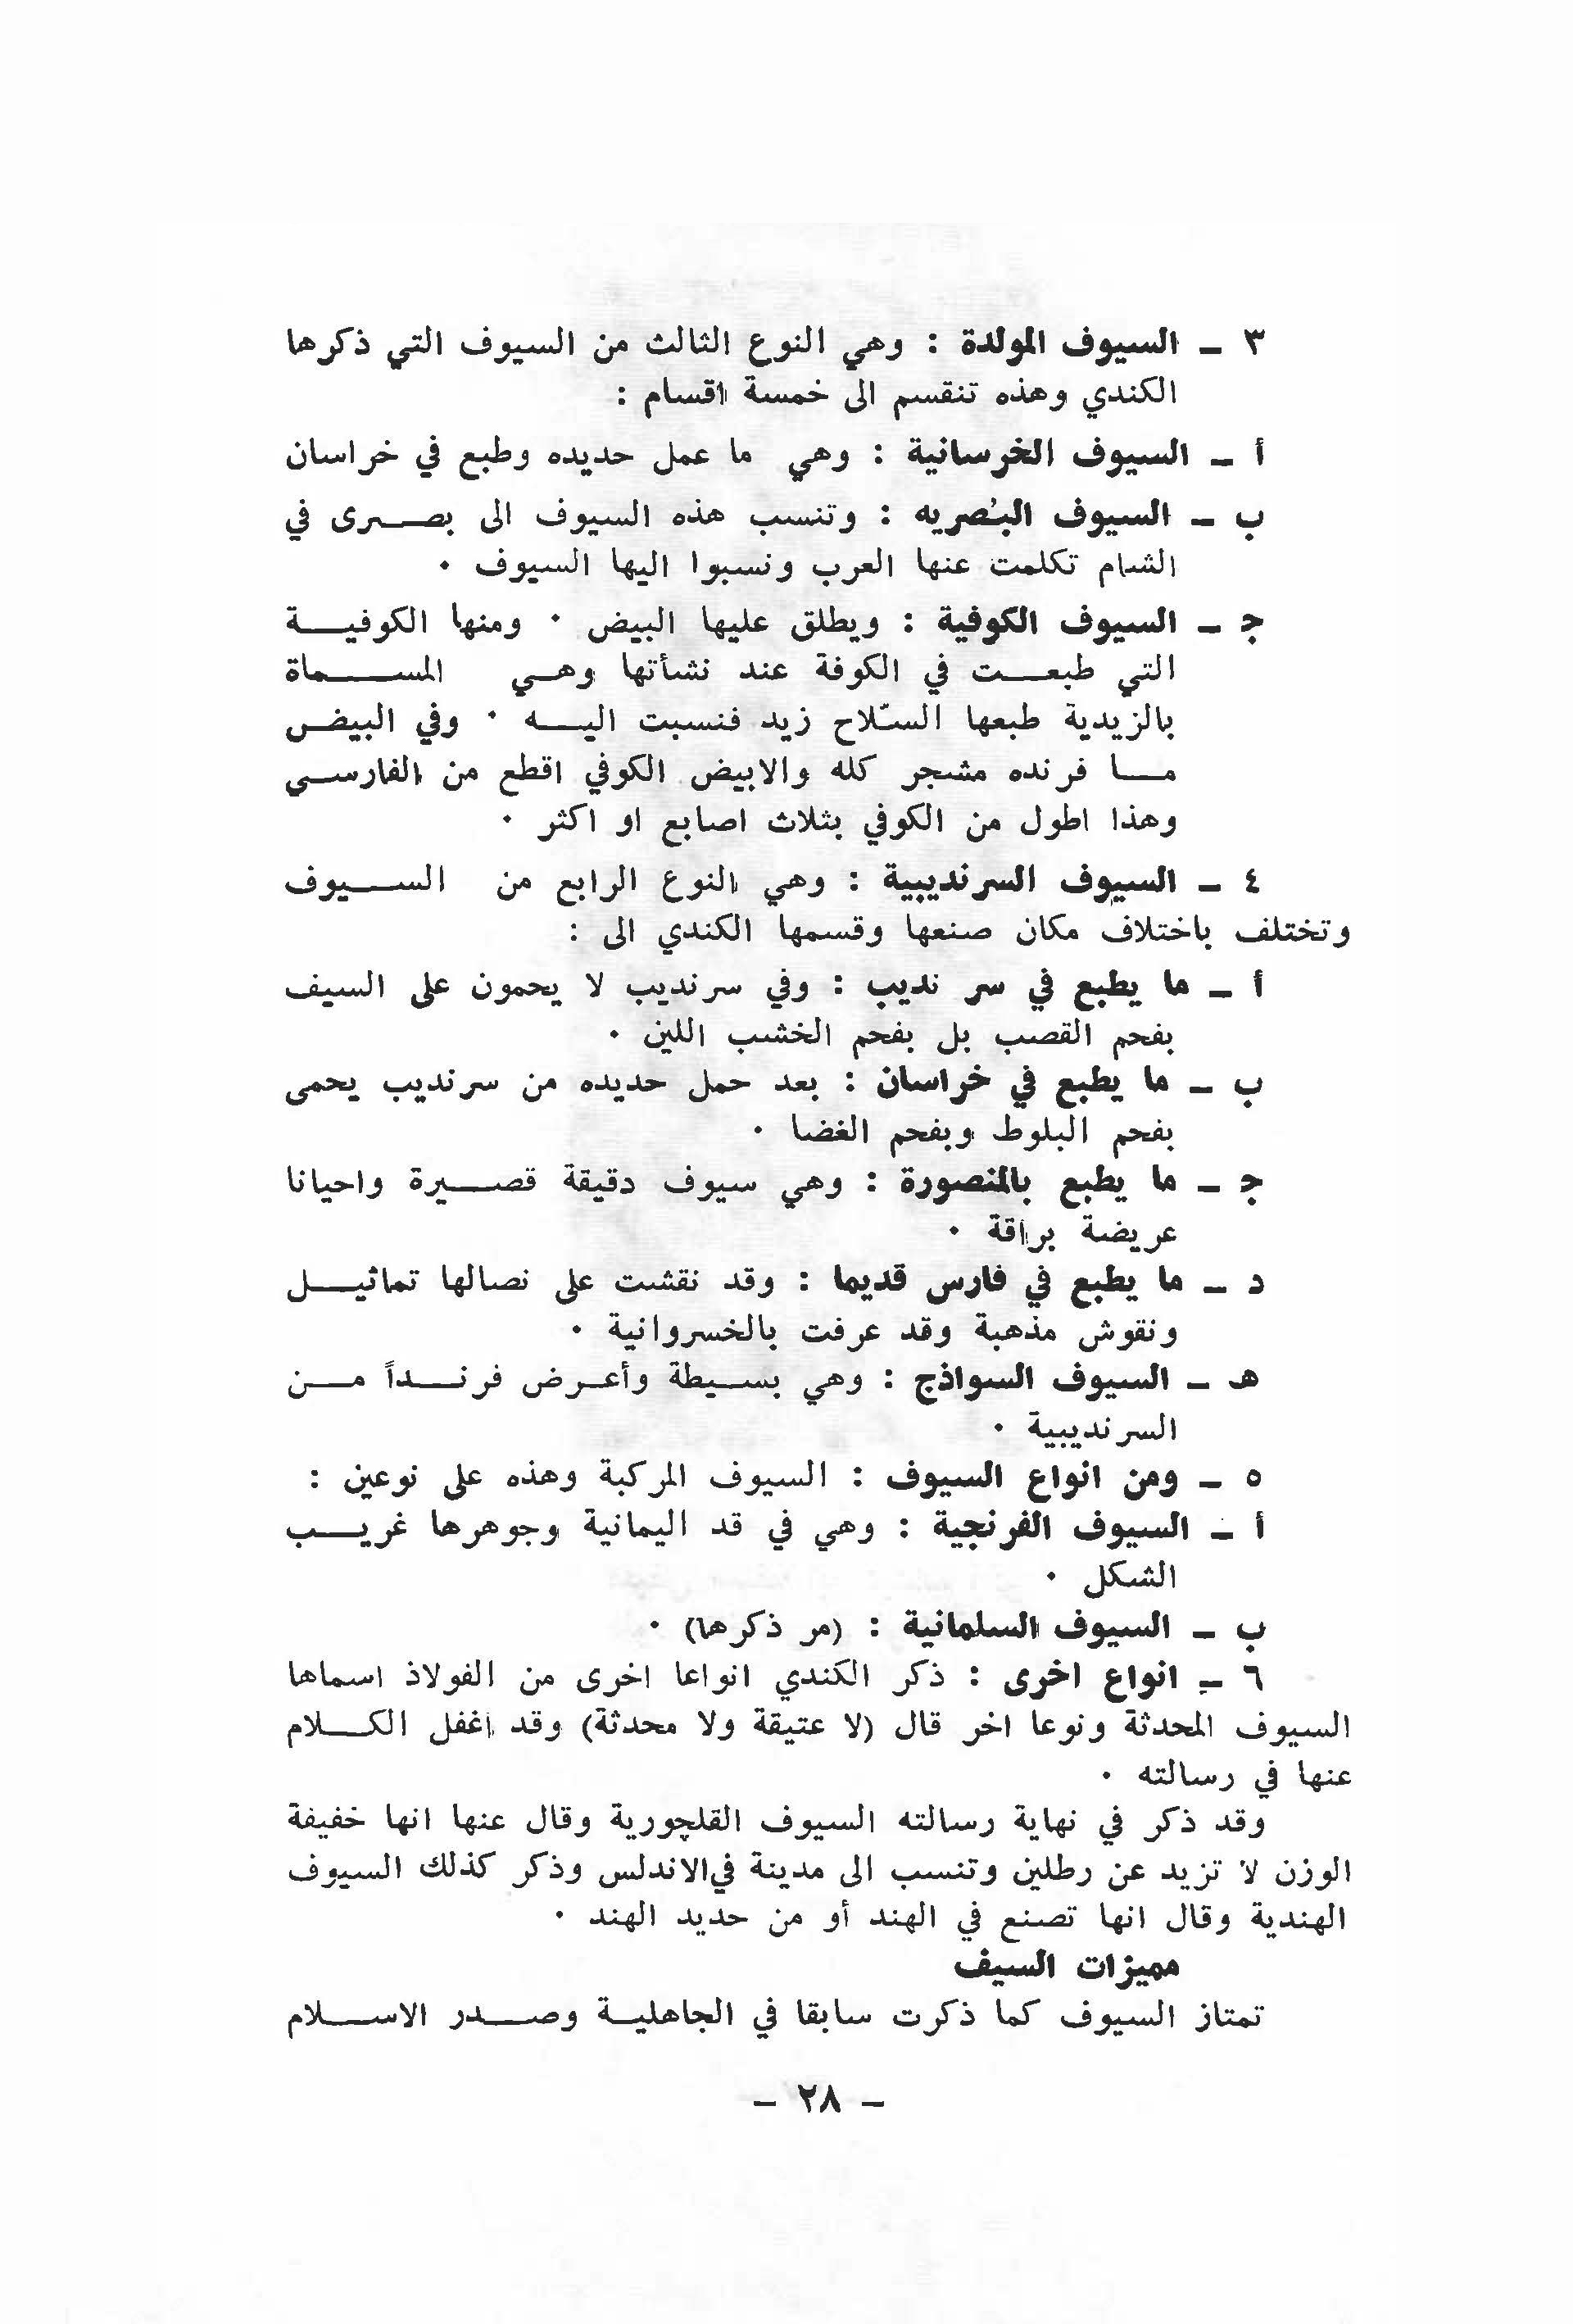 ٣ ـ السيوف المولدة : وهي النوع الثالث من السيوف التي ذكرها
الكندي وهذه تنقسم الى خمسة اقسام :
أ ـ السيوف الخرسانية : وهي ما عمل حديده وطبع في خراسان
ب ـ السيوف البُصريه : وتنسب هذه السيوف الى بصرى في
الشام تكلمت عنها العرب ونسبوا اليها السيوف .
جـ ـ السيوف الكوفية : ويطلق عليها البيض . ومنها الكوفية
التي طبعت في الكوفة عند نشأتها وهي المسماة
بالزيدية طبعها السّلاح زيد فنسبت اليه . وفي البيض
ما فرنده مشجر كله والابيض الكوفي اقطع من الفارسي
وهذا اطول من الكوفي بثلاث اصابع او اكثر .
٤ ـ السيوف السرنديبية : وهي النوع الرابع من السيوف
وتختلف باختلاف مكان صنعها وقسمها الكندي الى :
أ ـ ما يطبع في سر نديب : وفي سرنديب لا يحمون على السيف
بفحم القصب بل بفحم الخشب اللين .
ب ـ ما يطبع في خراسان : بعد حمل حديده من سرنديب يحمى
بفحم البلوط وبفحم الغضا .
جـ ـ ما يطبع بالمنصورة : وهي سيوف دقيقة قصيرة واحيانا
عريضة براقة .
د ـ ما يطبع في فارس قديما : وقد نقشت على نصالها تماثيل
ونقوش مذهبة وقد عرفت بالخسروانية .
هـ ـ السيوف السواذج : وهي بسيطة وأعرض فرنداً من
السرنديبية .
٥ ـ ومن انواع السيوف : السيوف المركبة وهذه على نوعين :
أ ـ السيوف الفرنجية : وهي في قد اليمانية وجوهرها غريب
الشكل .
ب ـ السيوف السلمانية : (مر ذكرها) .
٦ ـ انواع اخرى : ذكر الكندي انواعا اخرى من الفولاذ اسماها
السيوف المحدثة ونوعا اخر قال (لا عتيقة ولا محدثة) وقد اغفل الكلام
عنها في رسالته .
وقد ذكر في نهاية رسالته السيوف القلچورية وقال عنها انها خفيفة
الوزن لا تزيد عن رطلين وتنسب الى مدينة في الاندلس وذكر كذلك السيوف
الهندية وقال انها تصنع في الهند أو من حديد الهند .
مميزات السيف
تمتاز السيوف كما ذكرت سابقا في الجاهلية وصدر الاسلام
ـ ٢٨ ـ